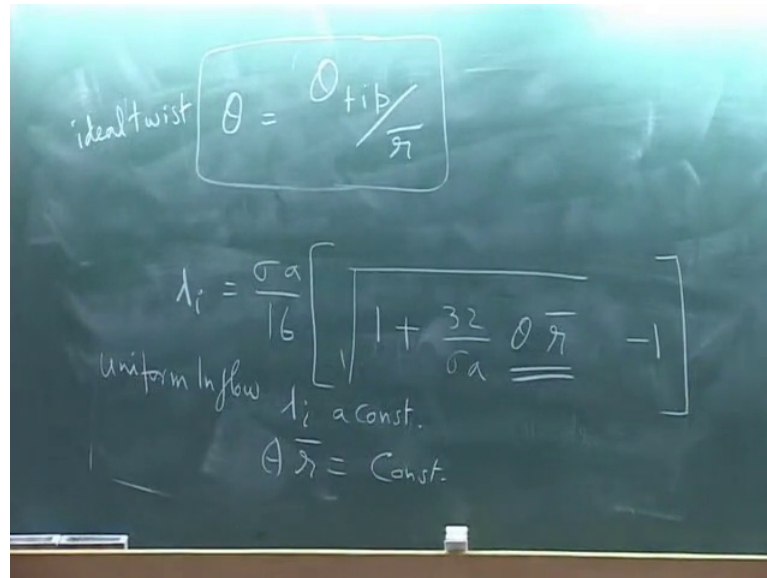 ideal twist θ = θtip/r̄
λi = σa/16 [√(1 + 32/σa θ r̄) -1]
Uniform Inflow λi a const.
θ r̄ = Const.